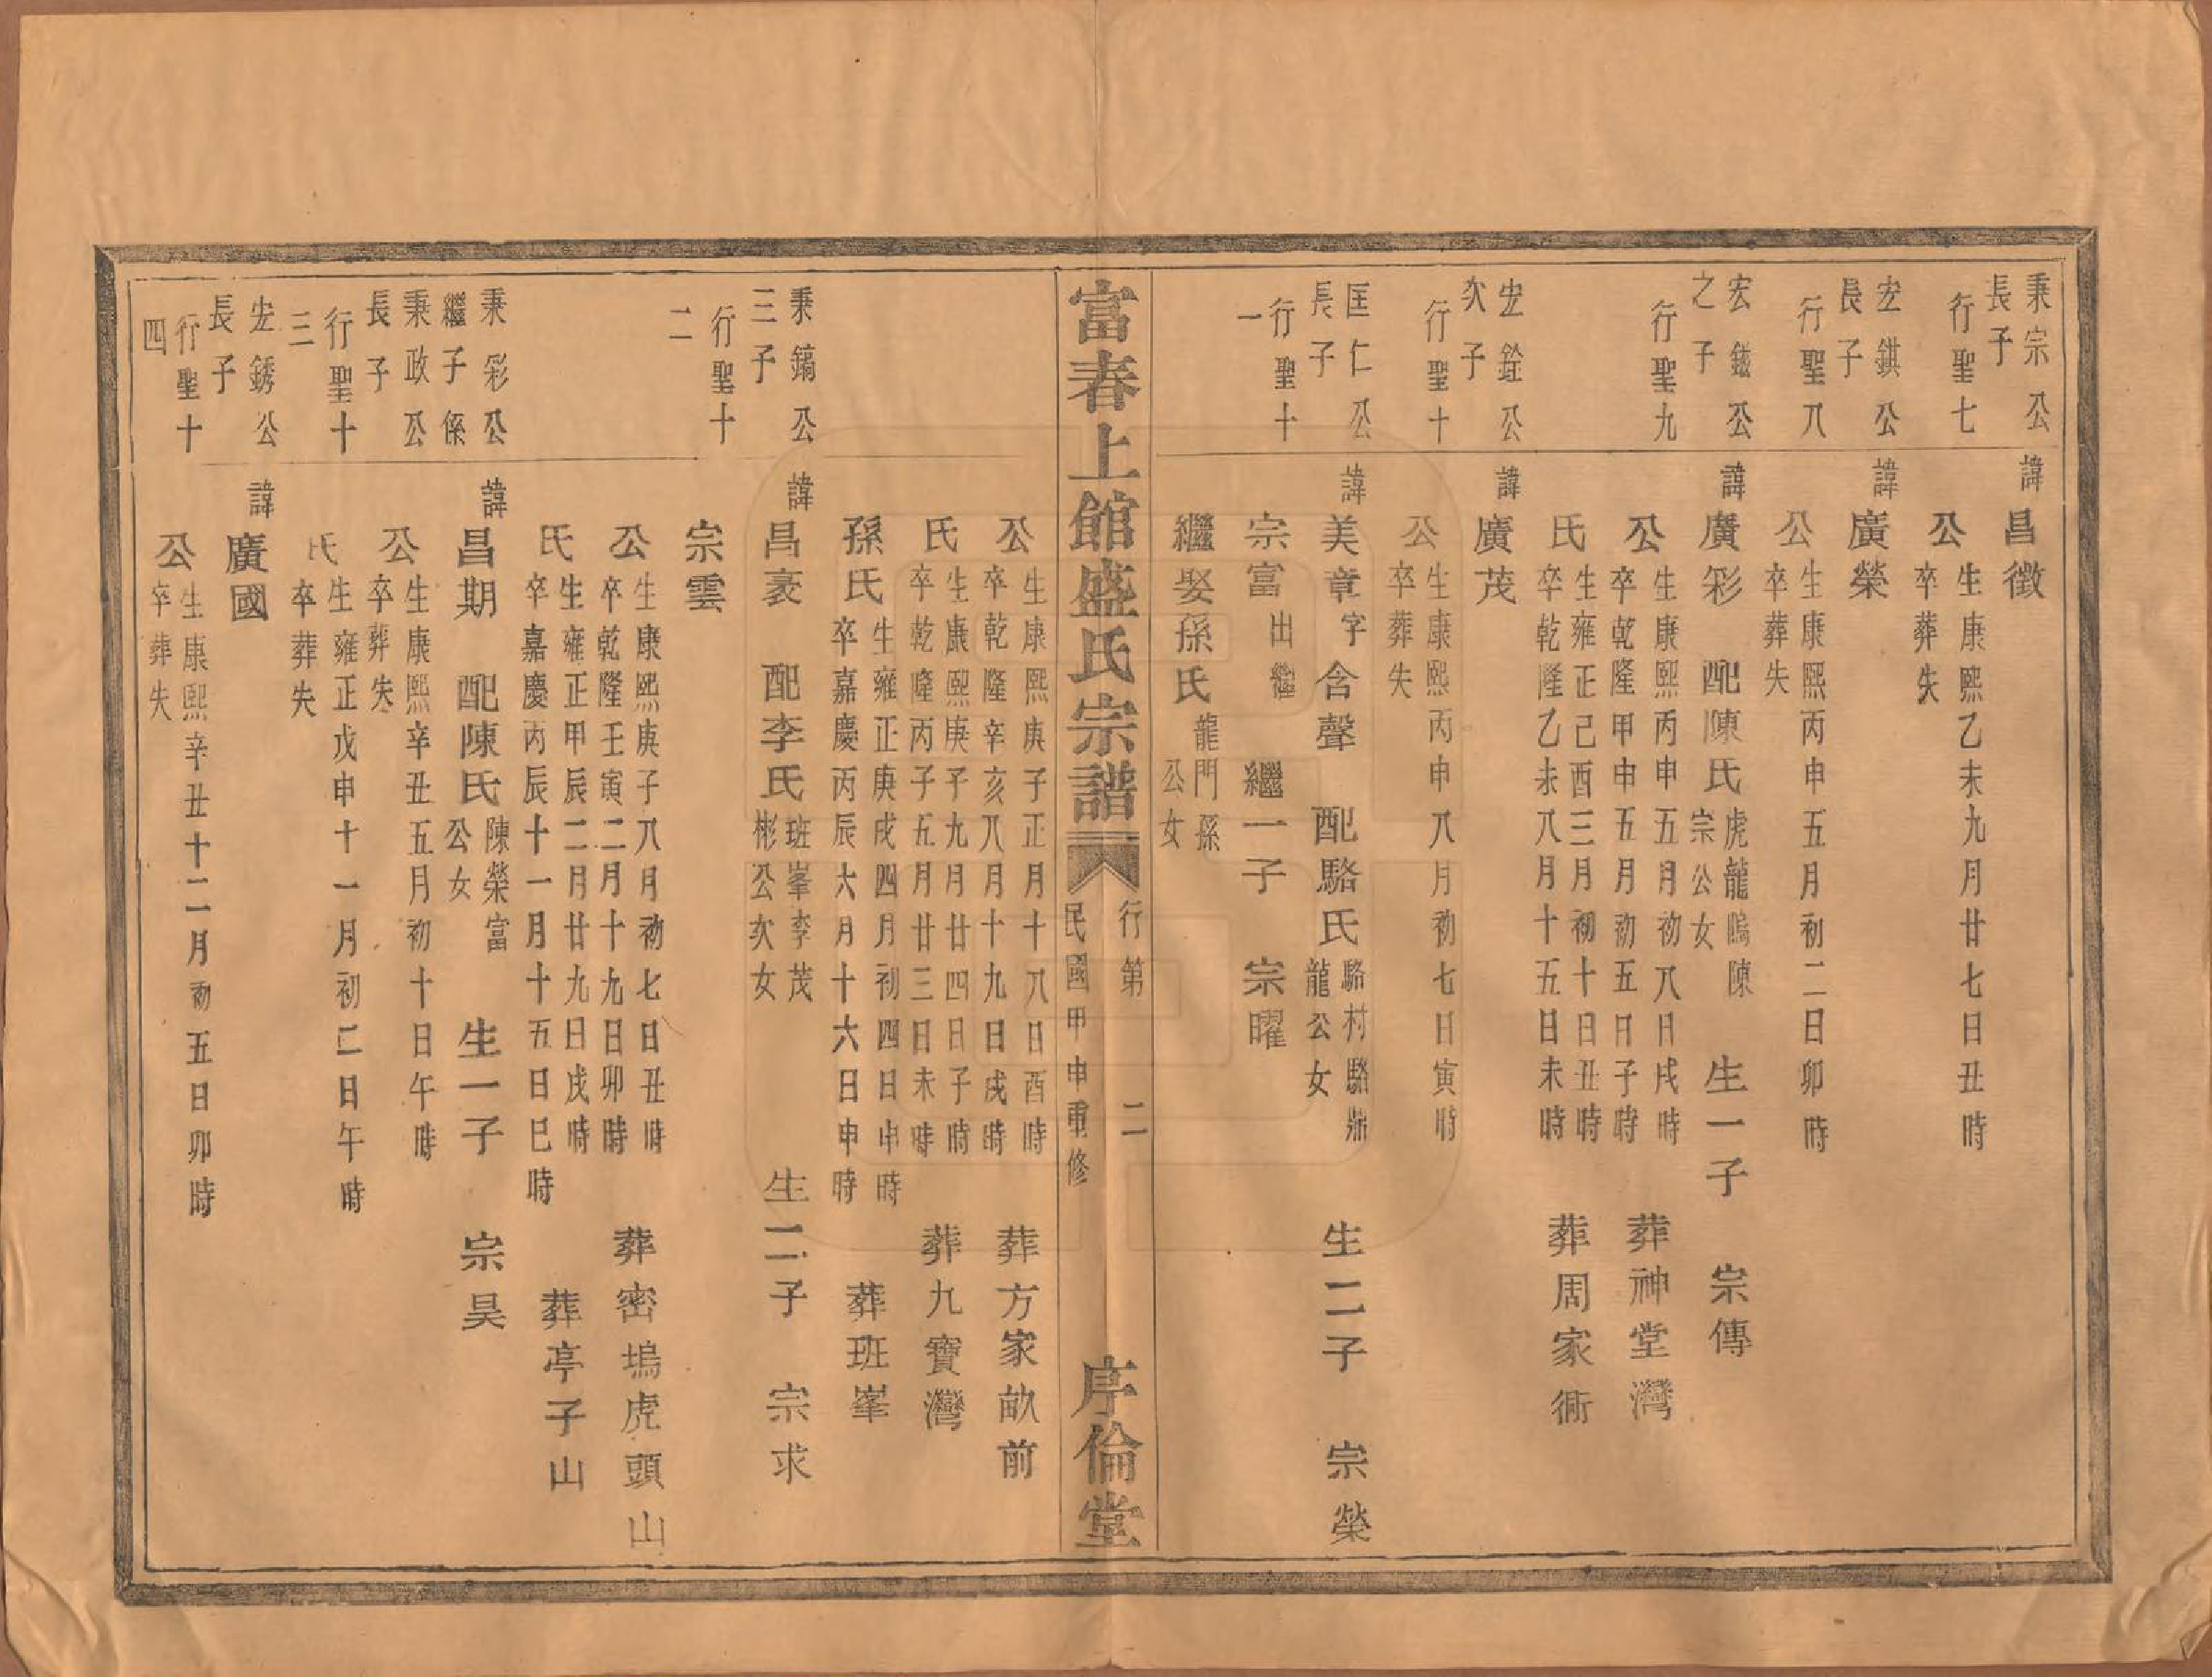 秉宗公
長子
行聖七
諱昌徵
公生康熙乙未九月廿七日丑時
卒葬失
宏錤公
長子
行聖八
諱廣榮
公生康熙丙申五月初二日卯時
卒葬失
宏鎡公
之子
行聖九
諱廣彩 配陳氏虎龍鴫陳宗公女 生一子 宗傳
公生康熙丙申五月初八日戌時
卒乾隆甲申五月初五日子時 葬神堂灣
氏生雍正己酉三月初十日丑時
卒乾隆乙未八月十五日未時 葬周家衕
宏銓公
次子
行聖十
諱廣茂
公生康熙丙申八月初七日寅時
卒葬失
匡仁公
長子
行聖十一
諱美章字含聲 配駱氏駱村駱鼎龍公女 生二子 宗榮
宗富出繼 繼一子 宗曜
繼娶孫氏龍門孫公女
富春上館盛氏宗譜
行第 二
民國甲申重修
序倫堂
公生康熙庚子正月十八日酉時
卒乾隆辛亥八月十九日戌時 葬方家畝前
氏生康熙庚子九月廿四日子時
卒乾隆丙子五月廿三日未時 葬九寶灣
孫氏生雍正庚戌四月初四日申時
卒嘉慶丙辰六月十六日申時 葬班峯
秉鎬公
三子
行聖十二
諱昌豪 配李氏班峯李茂彬公次女 生二子 宗求
宗雲
公生康熙庚子八月初七日丑時
卒乾隆壬寅二月十九日卯時 葬密塢虎頭山
氏生雍正甲辰二月廿九日戌時
卒嘉慶丙辰十一月十五日巳時 葬亭子山
秉彩公
繼子係
秉政公
長子
行聖十三
諱昌期 配陳氏陳榮富公女 生一子 宗昊
公生康熙辛丑五月初十日午時
卒葬失
氏生雍正戊申十一月初二日午時
卒葬失
宏銹公
長子
行聖十四
諱廣國
公生康熙辛丑十二月初五日卯時
卒葬失